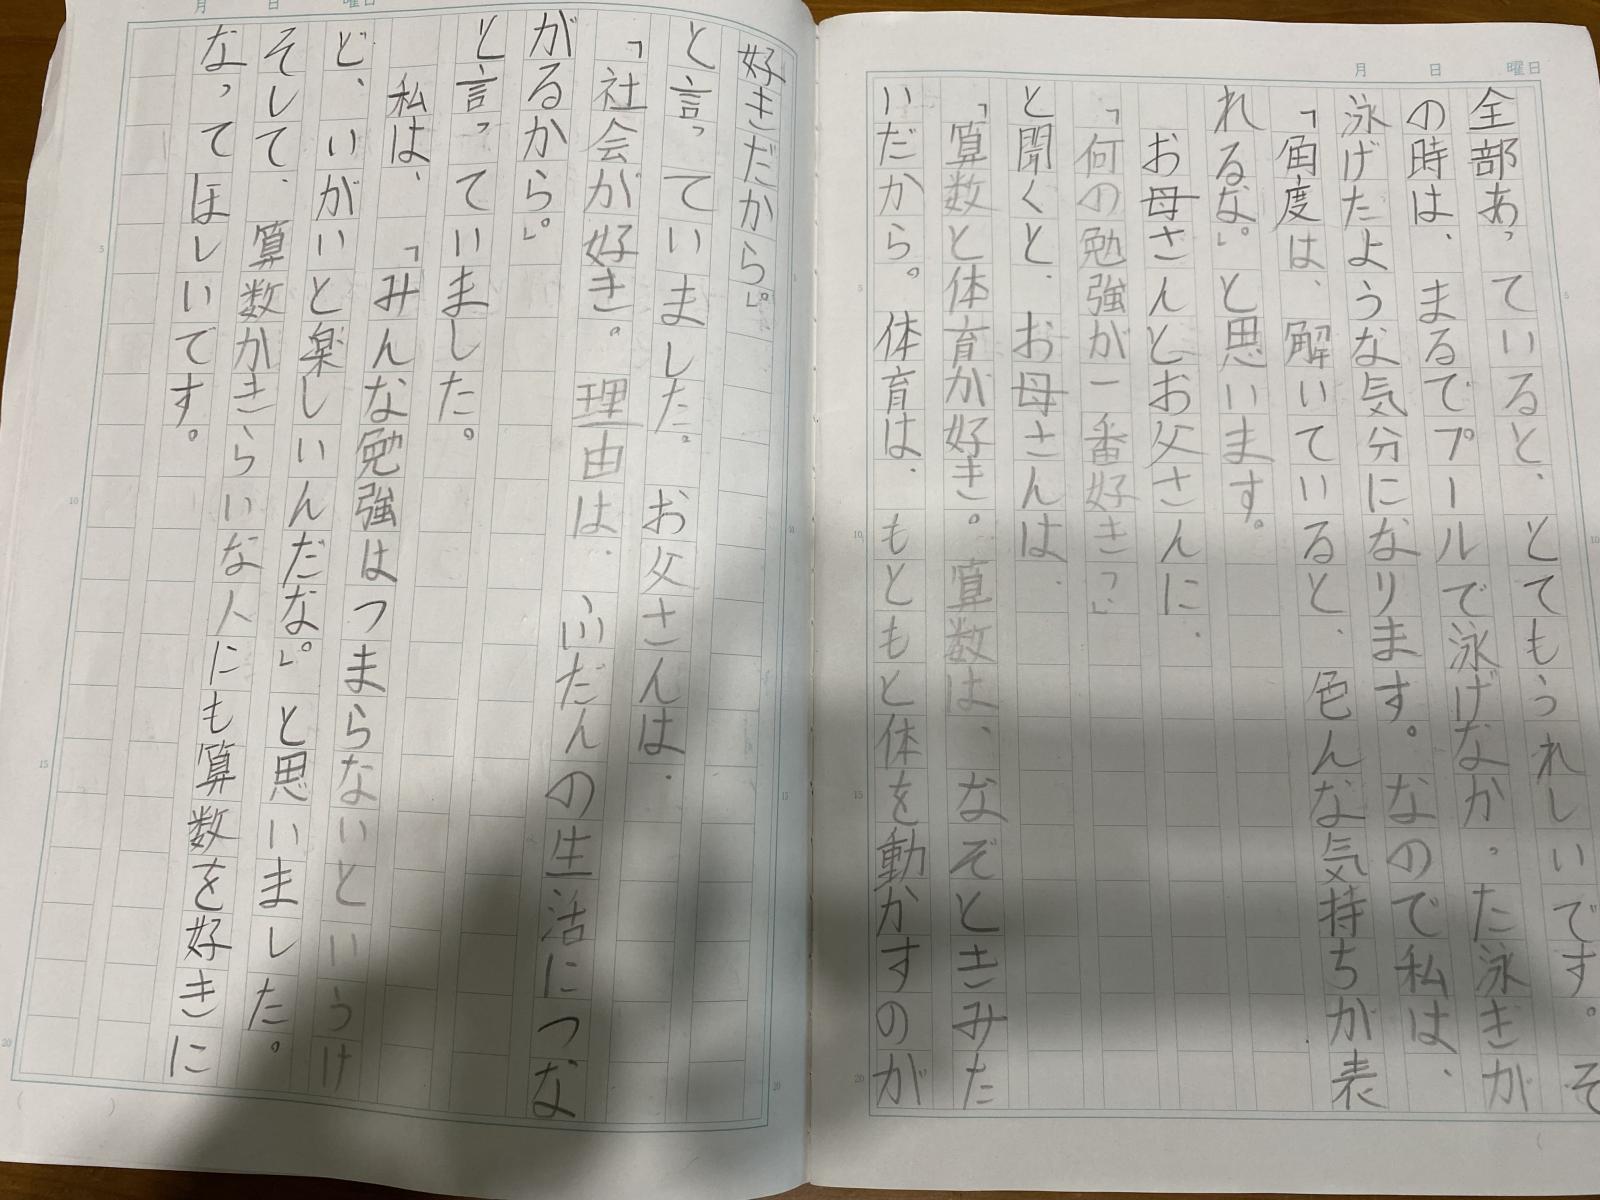 月　日　曜日
全部あっていると、とてもうれしいです。そ
の時は、まるでプールで泳げなかった泳きが
泳げたような気分になります。なので私は、
「角度は、解いていると、色んな気持ちが表
れるな。」と思います。
お母さんとお父さんに、
「何の勉強が一番好き？」
と聞くと、お母さんは、
「算数と体育が好き。算数は、なぞときみた
いだから。体育は、もともと体を動かすのが
月　日　曜日
好きだから。」
と言っていました。お父さんは、
「社会が好き。理由は、ふだんの生活につな
がるから。」
と言っていました。
私は、「みんな勉強はつまらないというけ
ど、いがいと楽しいんだな。」と思いました。
そして、算数がきらいな人にも算数を好きに
なってほしいです。
5
10
15
20
5
10
15
20